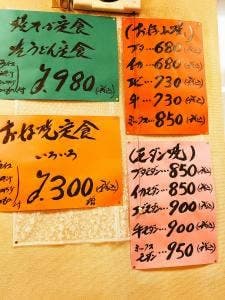 焼そば定食
焼うどん定食
¥980(税込)
お好焼定食
いろいろ
¥300増
(お好み焼)
ブタ…680(税込)
イカ…680(税込)
エビ…730(税込)
牛…730(税込)
ミックス…850(税込)
(モダン焼)
ブタモダン…850(税込)
イカモダン…850(税込)
エビモダン…900(税込)
牛モダン…900(税込)
ミックスモダン…950(税込)